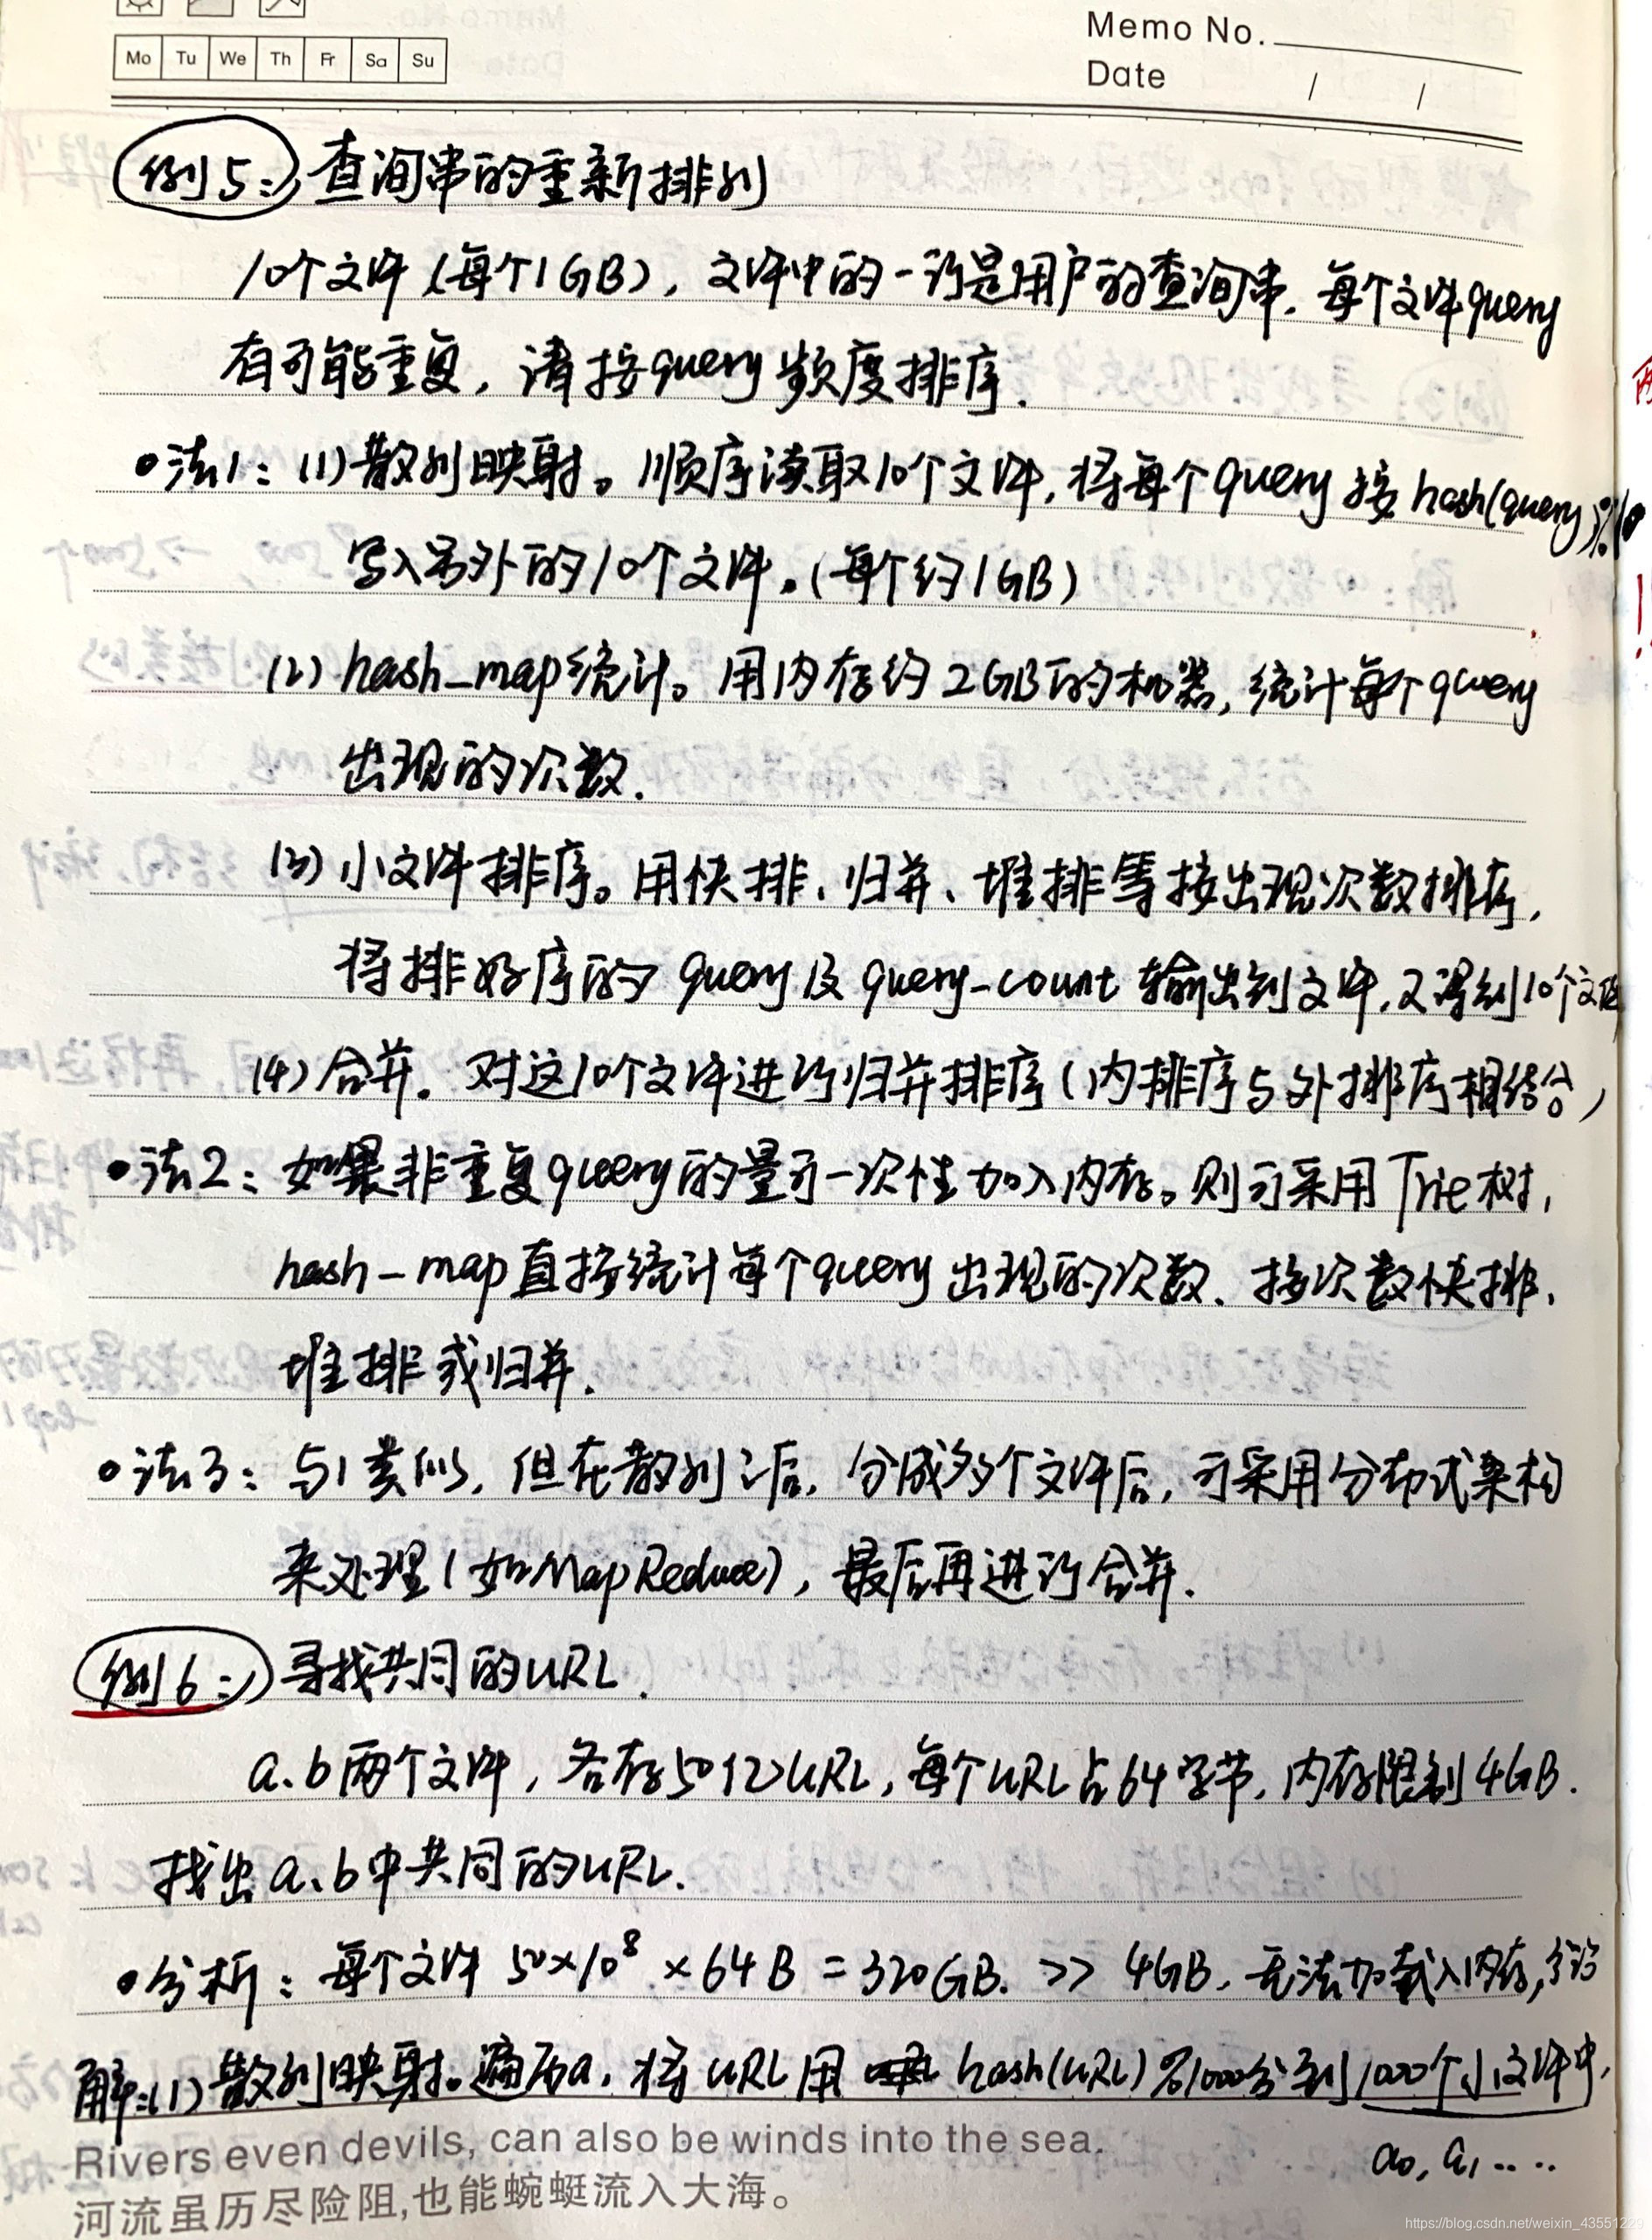 Memo No.
Mo Tu We Th Fr Sa Su
Date / /
例5: 查询串的重新排列
10个文件(每个1GB), 文件中的一行是用户的查询串. 每个文件query
有可能重复, 请按query频度排序.
•法1: (1)散列映射。顺序读取10个文件, 将每个query按hash(query)%10
写入另外的10个文件。(每个约1GB)
(2) hash_map统计。用内存约2GB的机器, 统计每个query
出现的次数.
(3) 小文件排序。用快排、归并、堆排等按出现次数排序,
将排好序的query及query_count输出到文件, 又得到10个文件
(4) 合并. 对这10个文件进行归并排序(内排序与外排序相结合)
•法2: 如果非重复query的量可一次性加入内存。则可采用Trie树,
hash_map直接统计每个query出现的次数、按次数快排、
堆排或归并.
•法3: 与1类似, 但在散列之后, 分成多个文件后, 可采用分布式架构
来处理(如MapReduce), 最后再进行合并.
例6: 寻找共同的URL.
a、b两个文件, 各存50亿URL, 每个URL占64字节, 内存限制4GB.
找出a、b中共同的URL.
•分析: 每个文件 50×10⁸×64B=320GB. >> 4GB, 无法加载入内存, 分治
解:(1) 散列映射。遍历a, 将URL用 hash(URL)%1000分到1000个小文件中,
a₀, a₁....
Rivers even devils, can also be winds into the sea.
河流虽历尽险阻,也能蜿蜒流入大海。